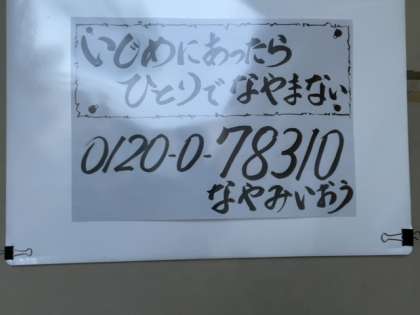 いじめにあったら
ひとりで なやまない
0120-0-78310
なやみいおう